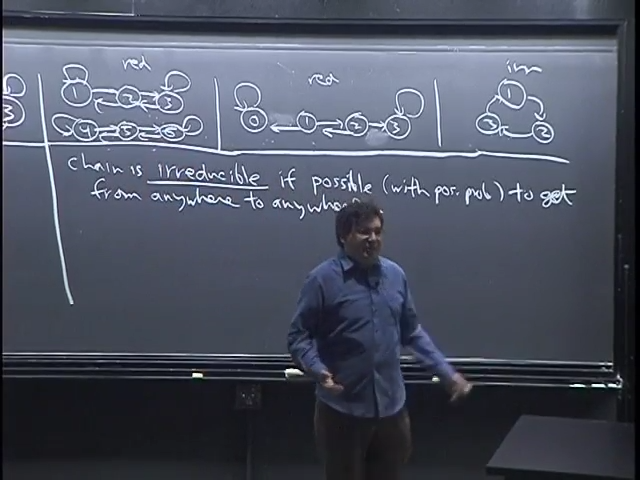 red
red
irr
3
1
2
3
4
5
6
0
1
2
3
1
3
2
chain is irreducible if possible (with pos. prob) to get
from anywhere to anywhere